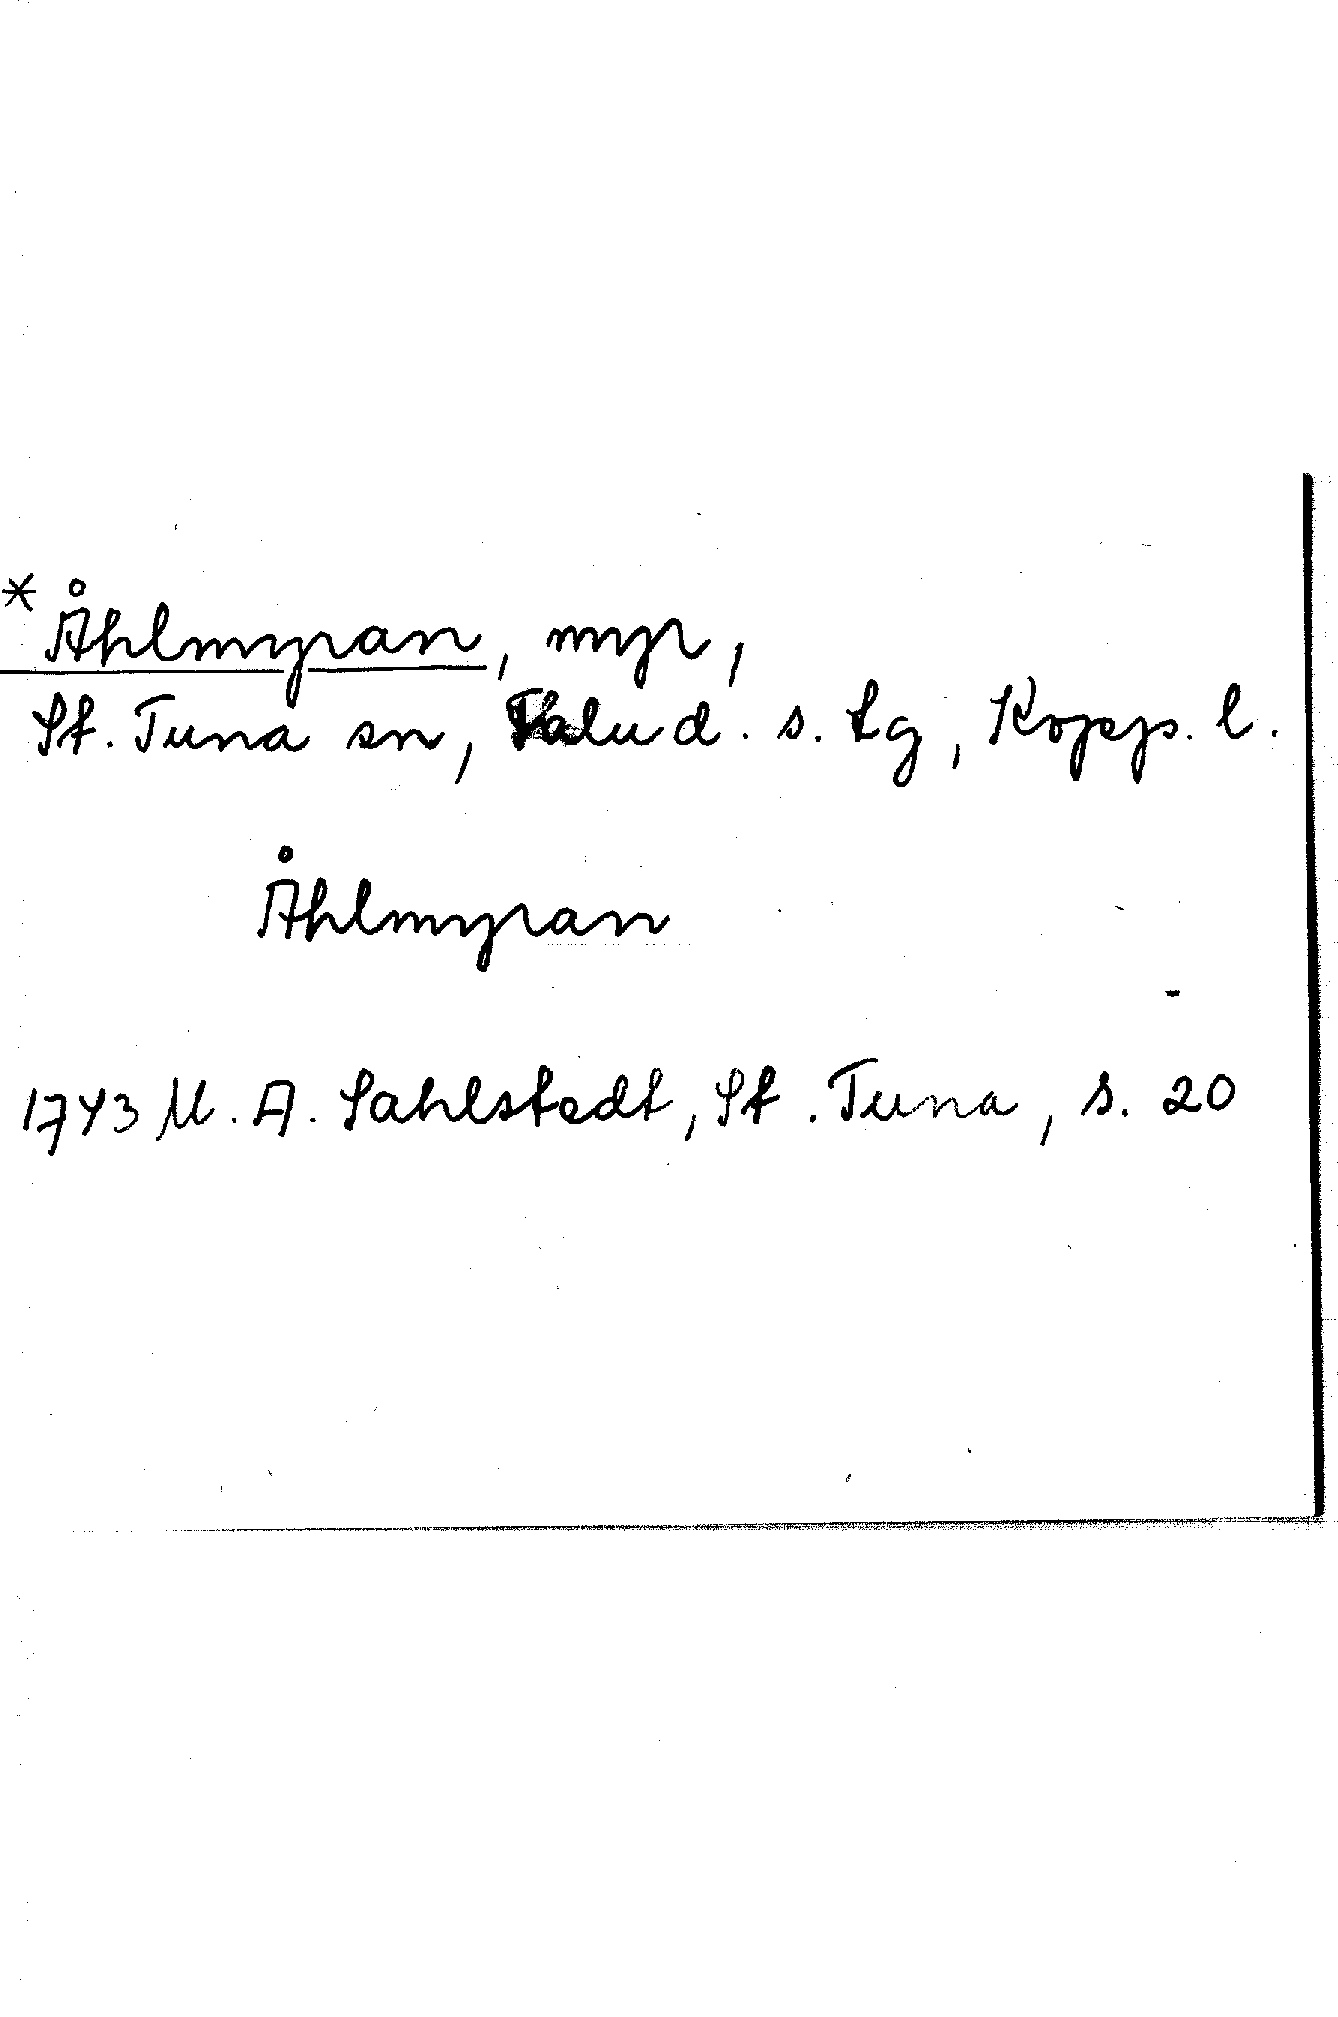 *Åhlmyran, myr,
St. Tuna sn, Falu d. s. tg, Kopp. l.
Åhlmyran
1743 M. A. Sahlstedt, St. Tuna, s. 20